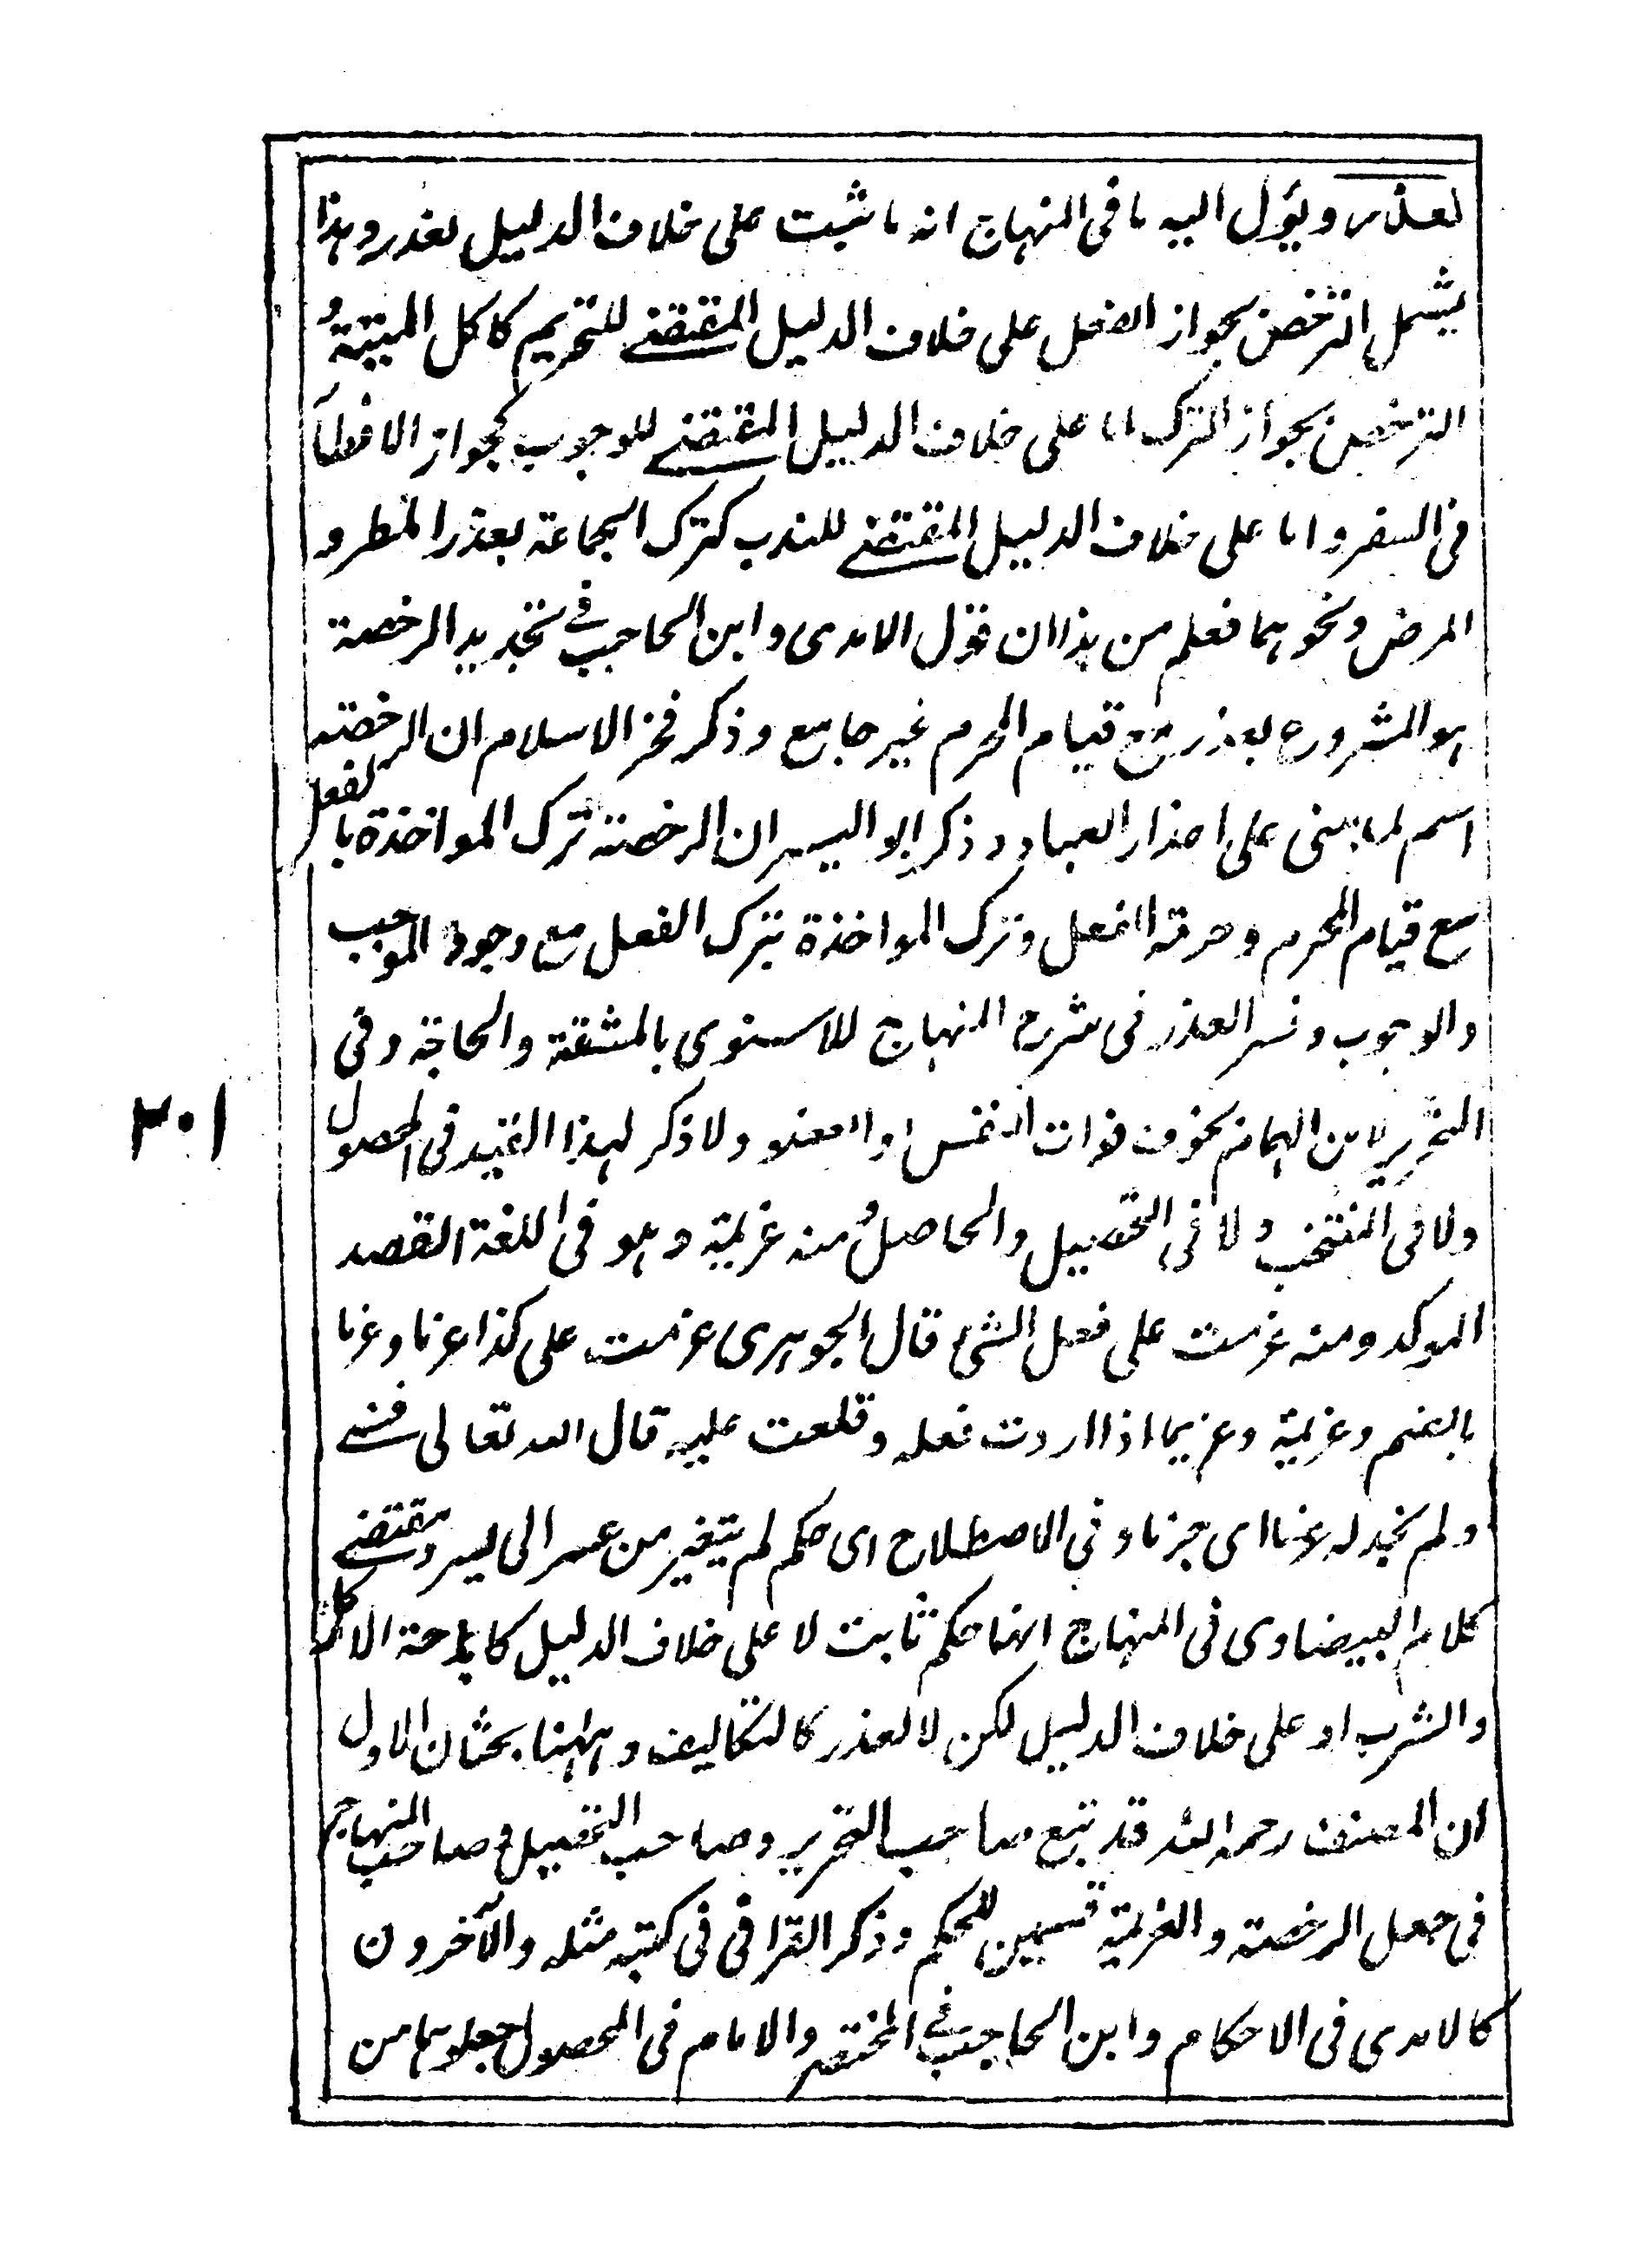 لعذر ويؤل اليه ما فى المنهاج انه ما ثبت على خلاف الدليل لعذر وهذا
يشمل الترخص بجواز الفعل على خلاف الدليل المقتضے للتحريم كاكل الميتة و
الترخص بجواز الترك اما على خلاف الدليل المقتضے للوجوب كجواز الافطآ
فى السفر واما على خلاف الدليل المقتضے للندب كترك الجماعة بعذر المطر و
المرض ونحوهما فعلم من هذا ان قول الامدى وابن الحاجب فے تحديد الرخصة
هو المشروع بعذر مع قيام المحرم غير جامع وذكر فخر الاسلام ان الرخصته
اسم لما بنى على اعذار العباد وذكر ابو اليسر ان الرخصة ترك المواخذة بالفعل
مع قيام المحرم وحرمة الفعل وترك المواخذة بترك الفعل مع وجود الموجب
والوجوب وفسر العذر فى شرح المنهاج للاسنوى بالمشقة والحاجة وفى
التحرير لابن الهمام بخوف فوات النفس او العضو ولا ذكر لهذا القيد فى المحصول
ولا فى المنتخب ولا فى التحصيل والحاصل ومنه عزيمة وهو فى اللغة القصد
الموكد ومنه عزمت على فعل الشئ قال الجوهرى عزمت على كذا عزما وعزما
بالضم وعزيمة وعزيما اذا اردت فعله وقطعت عليه قال الله تعالى فنسے
ولم نجد له عزما اى جزما وفى الاصطلاح اى حكم لم يتغير من عسر الى يسر ومقتضے
كلام البيضاوى فى المنهاج انها حكم ثابت لا على خلاف الدليل كاباحة الاكل
والشرب او على خلاف الدليل لكن لا لعذر كالتكاليف وههنا بحثان الاول
ان المصنف رحمه الله قد تبع صاحب التحرير وصاحب التحصيل وصاحب المنهاج
فى جعل الرخصة والعزيمة قسمين للحكم وذكر القرافى فى كتبه مثله والآخرون
كالامدى فى الاحكام وابن الحاجب فے المختصر والامام فى المحصول جعلوهما من
٣٠١